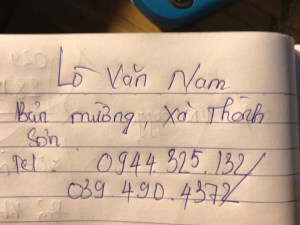 Lò Văn Nam
Bản mường, xã Thành
Sơn
Tel: 0944.325.132/
039.490.4372/